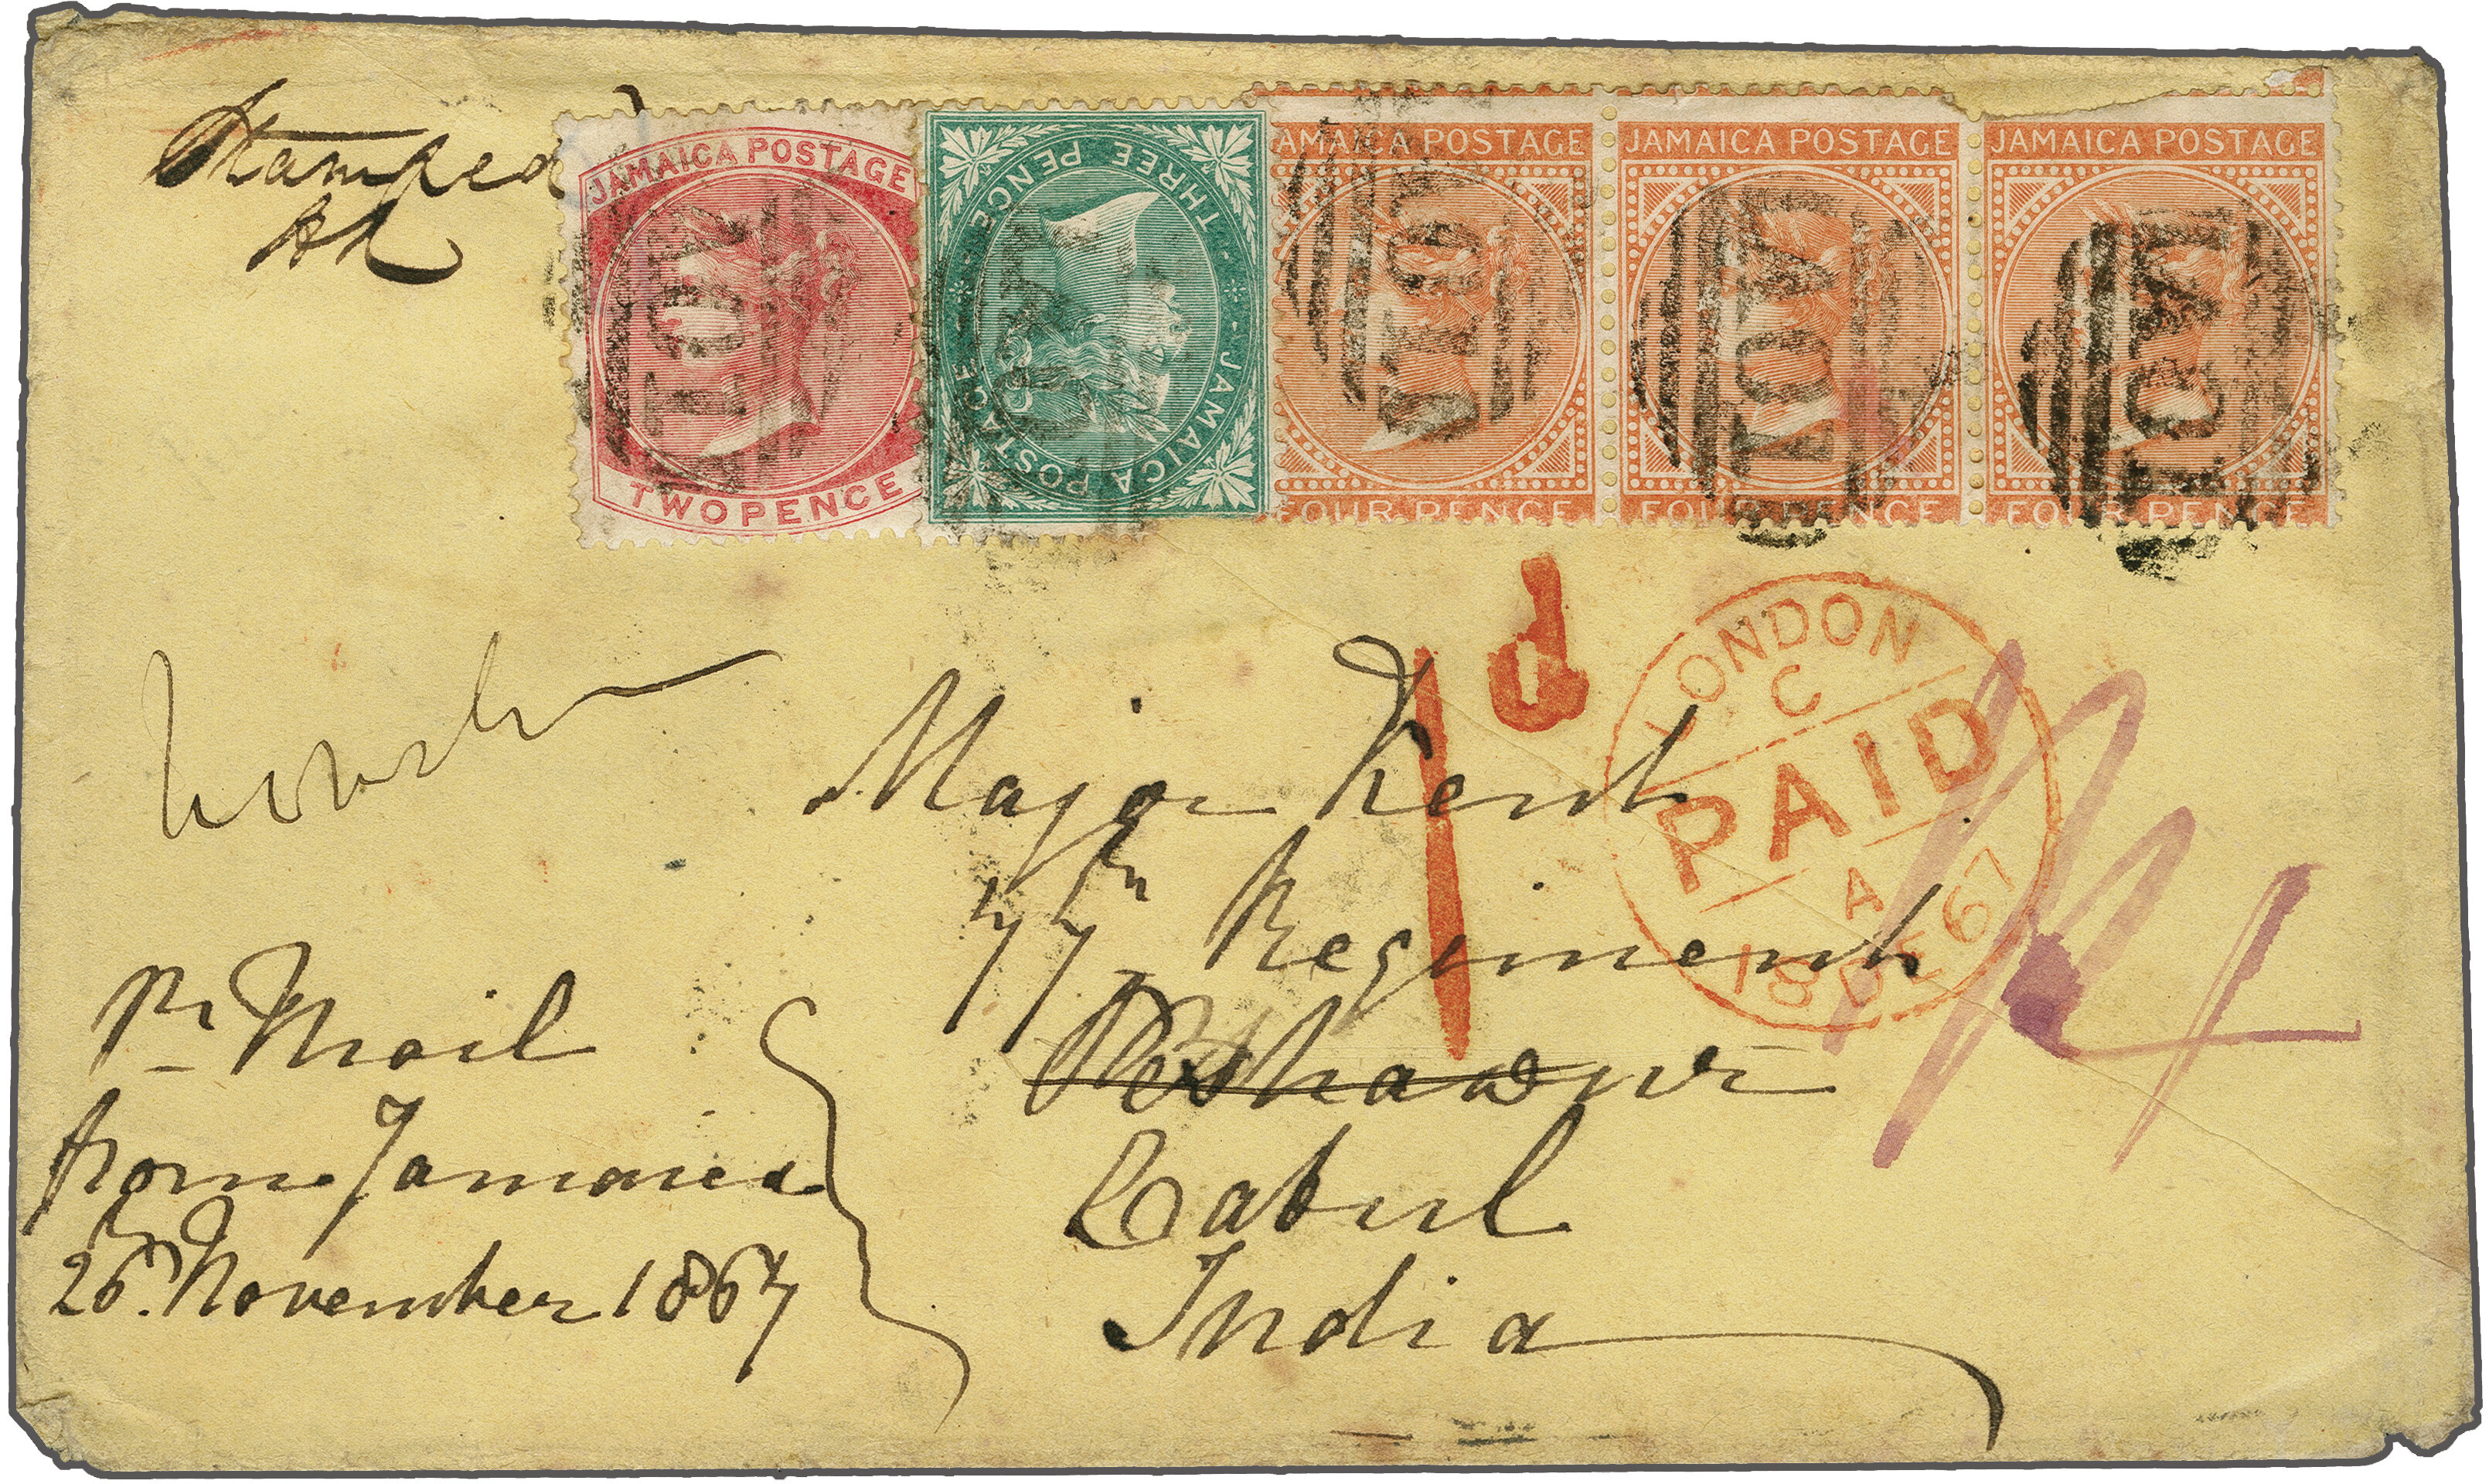 Stamped
JAMAICA POSTAGE
TWO PENCE
JAMAICA POSTAGE
THREE PENCE
JAMAICA POSTAGE
FOUR PENCE
JAMAICA POSTAGE
FOUR PENCE
JAMAICA POSTAGE
FOUR PENCE
A01
A01
A01
A01
1d
LONDON
C
PAID
A
18 DE 67
Major Kent
77th Regiment
Peshawur
Cabul
India
Pr Mail
from Jamaica
26th November 1867